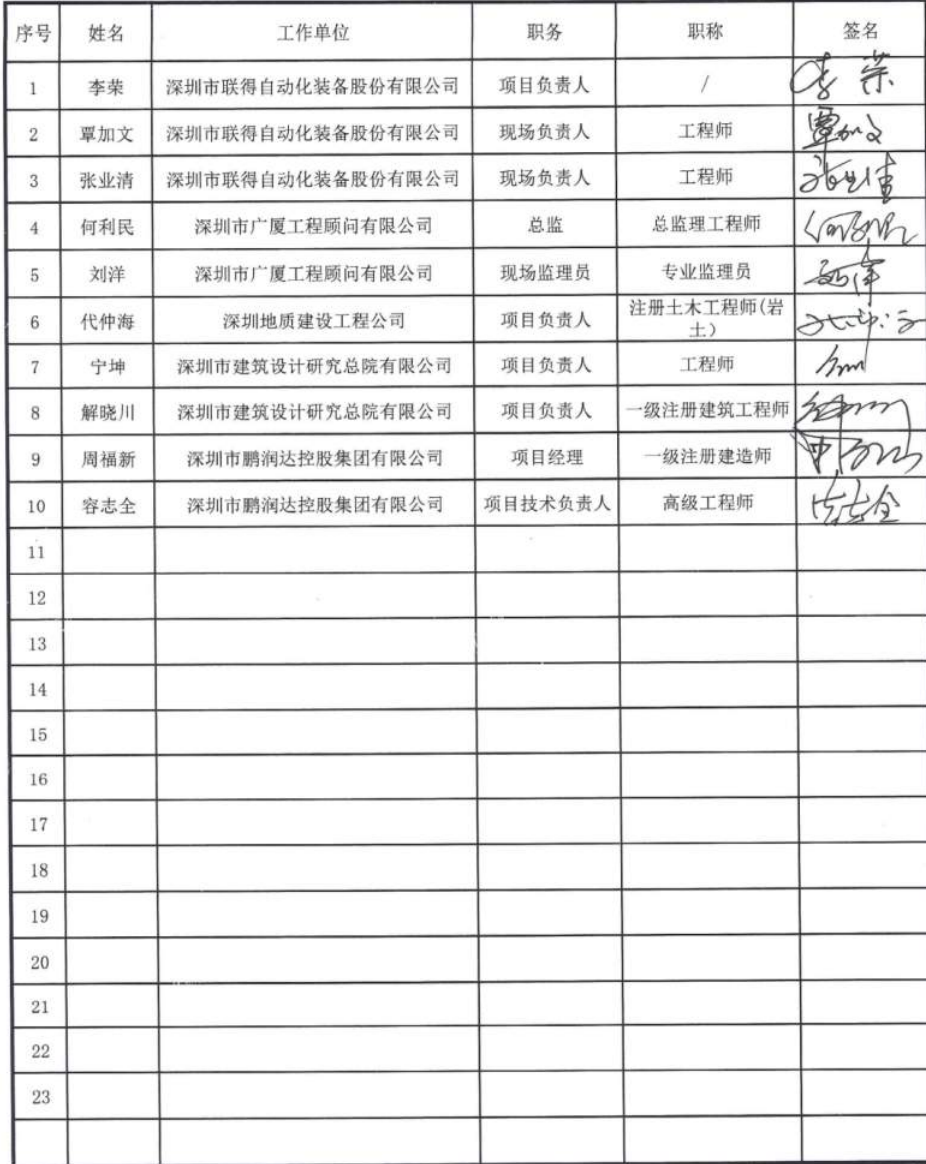 序号 姓名 工作单位 职务 职称 签名
1 李荣 深圳市联得自动化装备股份有限公司 项目负责人 / 李荣
2 覃加文 深圳市联得自动化装备股份有限公司 现场负责人 工程师 覃加文
3 张业清 深圳市联得自动化装备股份有限公司 现场负责人 工程师
4 何利民 深圳市广厦工程顾问有限公司 总监 总监理工程师
5 刘洋 深圳市广厦工程顾问有限公司 现场监理员 专业监理员
6 代仲海 深圳地质建设工程公司 项目负责人 注册土木工程师(岩
土)
7 宁坤 深圳市建筑设计研究总院有限公司 项目负责人 工程师
8 解晓川 深圳市建筑设计研究总院有限公司 项目负责人 一级注册建筑工程师
9 周福新 深圳市鹏润达控股集团有限公司 项目经理 一级注册建造师
10 容志全 深圳市鹏润达控股集团有限公司 项目技术负责人 高级工程师
11
12
13
14
15
16
17
18
19
20
21
22
23